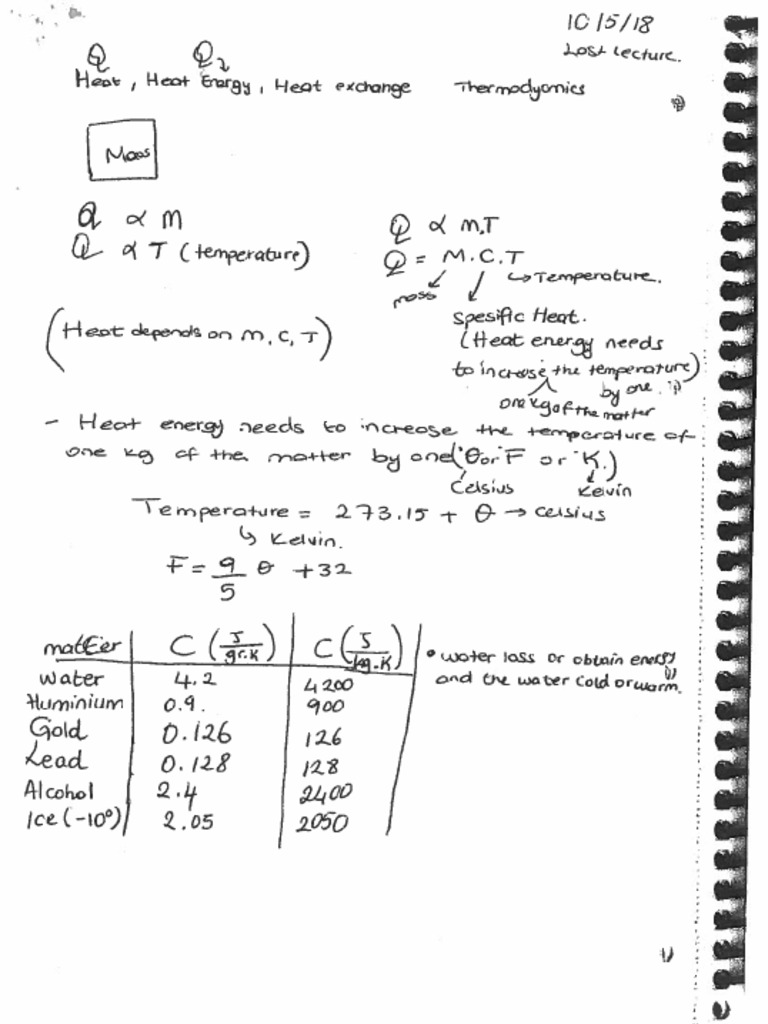 10/5/18
Last lecture.
Q Q₂
Heat, Heat Energy, Heat exchange Thermodyomics
Mass
Q ∝ m
Q ∝ T (temperature)
Q ∝ m.T
Q = M.C.T
mass
↳Temperature.
Spesific Heat.
(Heat energy needs
to increase the temperature)
by one.
one kg of the matter
(Heat depends on m, c, T)
- Heat energy needs to increase the temperature of
one kg of the matter by one (°θ or °F or °K.)
Celsius Kelvin
Temperature = 273.15 + θ → celsius
↳ Kelvin.
F = 9/5 θ + 32
matter C (J/gr.K) C (J/kg.K)
Water 4.2 4200
Aluminium 0.9. 900
Gold 0.126 126
Lead 0.128 128
Alcohol 2.4 2400
Ice (-10°) 2.05 2050
• water loss or obtain energy
and the water cold or warm.